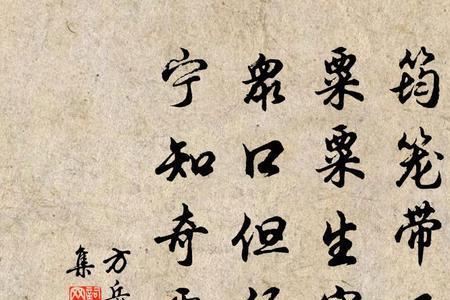 筠笼带
粟粟生
众口但
宁知奇
方岳
集